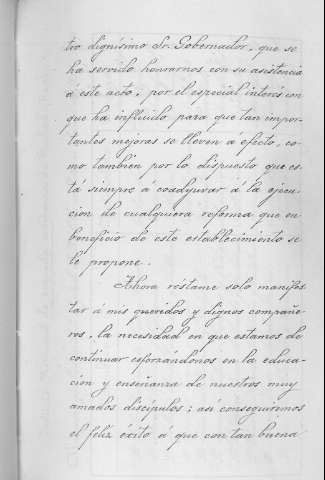 tro dignísimo Sr. Gobernador, que se
ha servido honrarnos con su asistencia
á este acto, por el especial interés con
que ha influido para que tan impor-
tantes mejoras se lleven á efecto, co-
mo también por lo dispuesto que es-
tá siempre a coadyuvar á la ejecu-
ción de cualquiera reforma que en
beneficio de este establecimiento se
le propone.
Ahora réstame solo manifes
tar á mis queridos y dignos compañe-
ros, la necesidad en que estamos de
continuar esforzándonos en la educa-
ción y enseñanza de nuestros muy
amados discípulos; así conseguiremos
el feliz éxito á que con tan buena